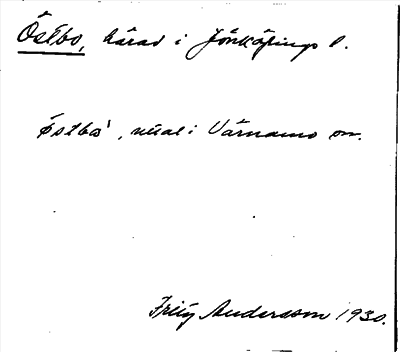 Östbo, härad i Jönköpings l.
östbo', uttal i Värnamo
Andersson 1930.